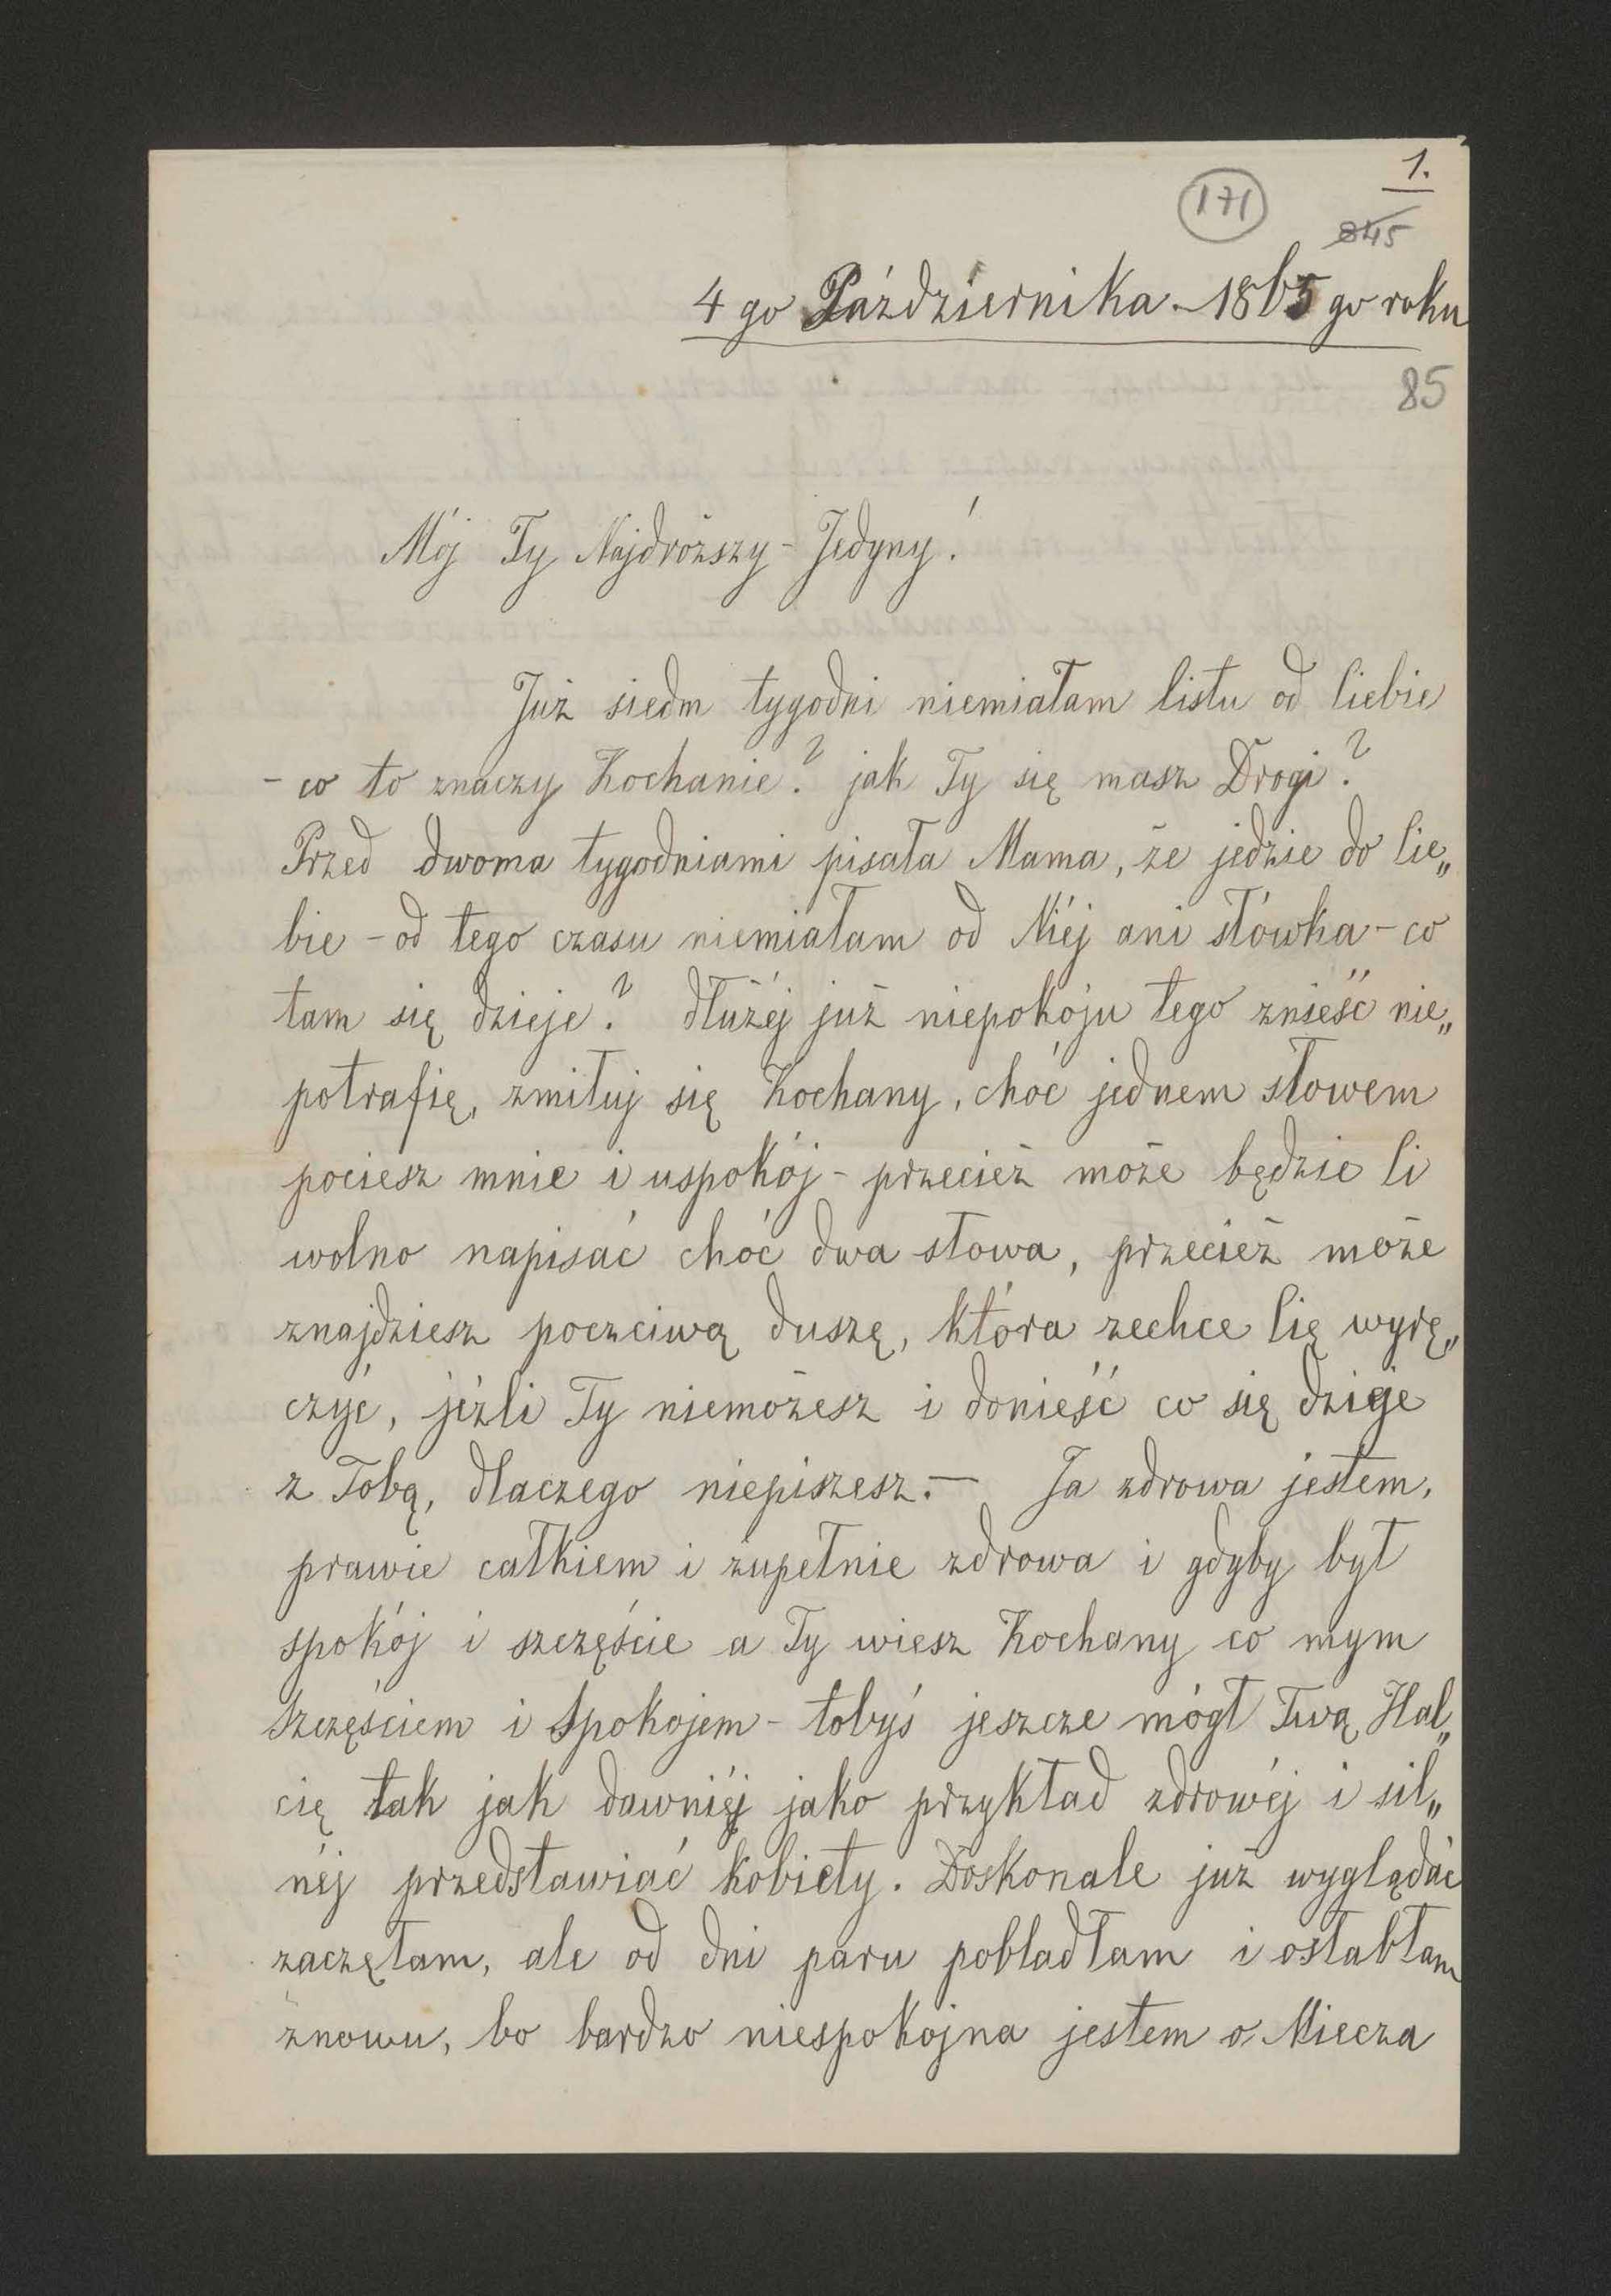 1.
171
845
4 go Października - 1865 go roku
85
Mój Ty Najdroższy - Jedyny!
Już siedm tygodni niemiałam listu od Ciebie
- co to znaczy Kochanie? jak Ty się masz Drogi?
Przed dwoma tygodniami pisała Mama, że jedzie do Cie„
bie - od tego czasu niemiałam od Niéj ani słówka - co
tam się dzieje? dłużéj już niepokoju tego znieść nie„
potrafię, zmiłuj się Kochany, choć jednem słowem
pociesz mnie i uspokój - przecież może będzie Ci
wolno napisać choć dwa słowa, przecież może
znajdziesz poczciwą duszę, która zechce Cię wyrę„
czyć, jeżli Ty niemożesz i donieść co się dzieje
z Tobą, dlaczego niepiszesz. — Ja zdrowa jestem,
prawie całkiem i zupełnie zdrowa i gdyby był
spokój i szczęście a Ty wiesz Kochany co mym
szczęściem i spokojem - tobyś jeszcze mógł Twą Hal„
cię tak jak dawniéj jako przykład zdrowéj i sil„
néj przedstawiać kobiety. Doskonale już wyglądać
zaczęłam, ale od dni paru pobladłam i osłabłam
znowu, bo bardzo niespokojna jestem o Miecza